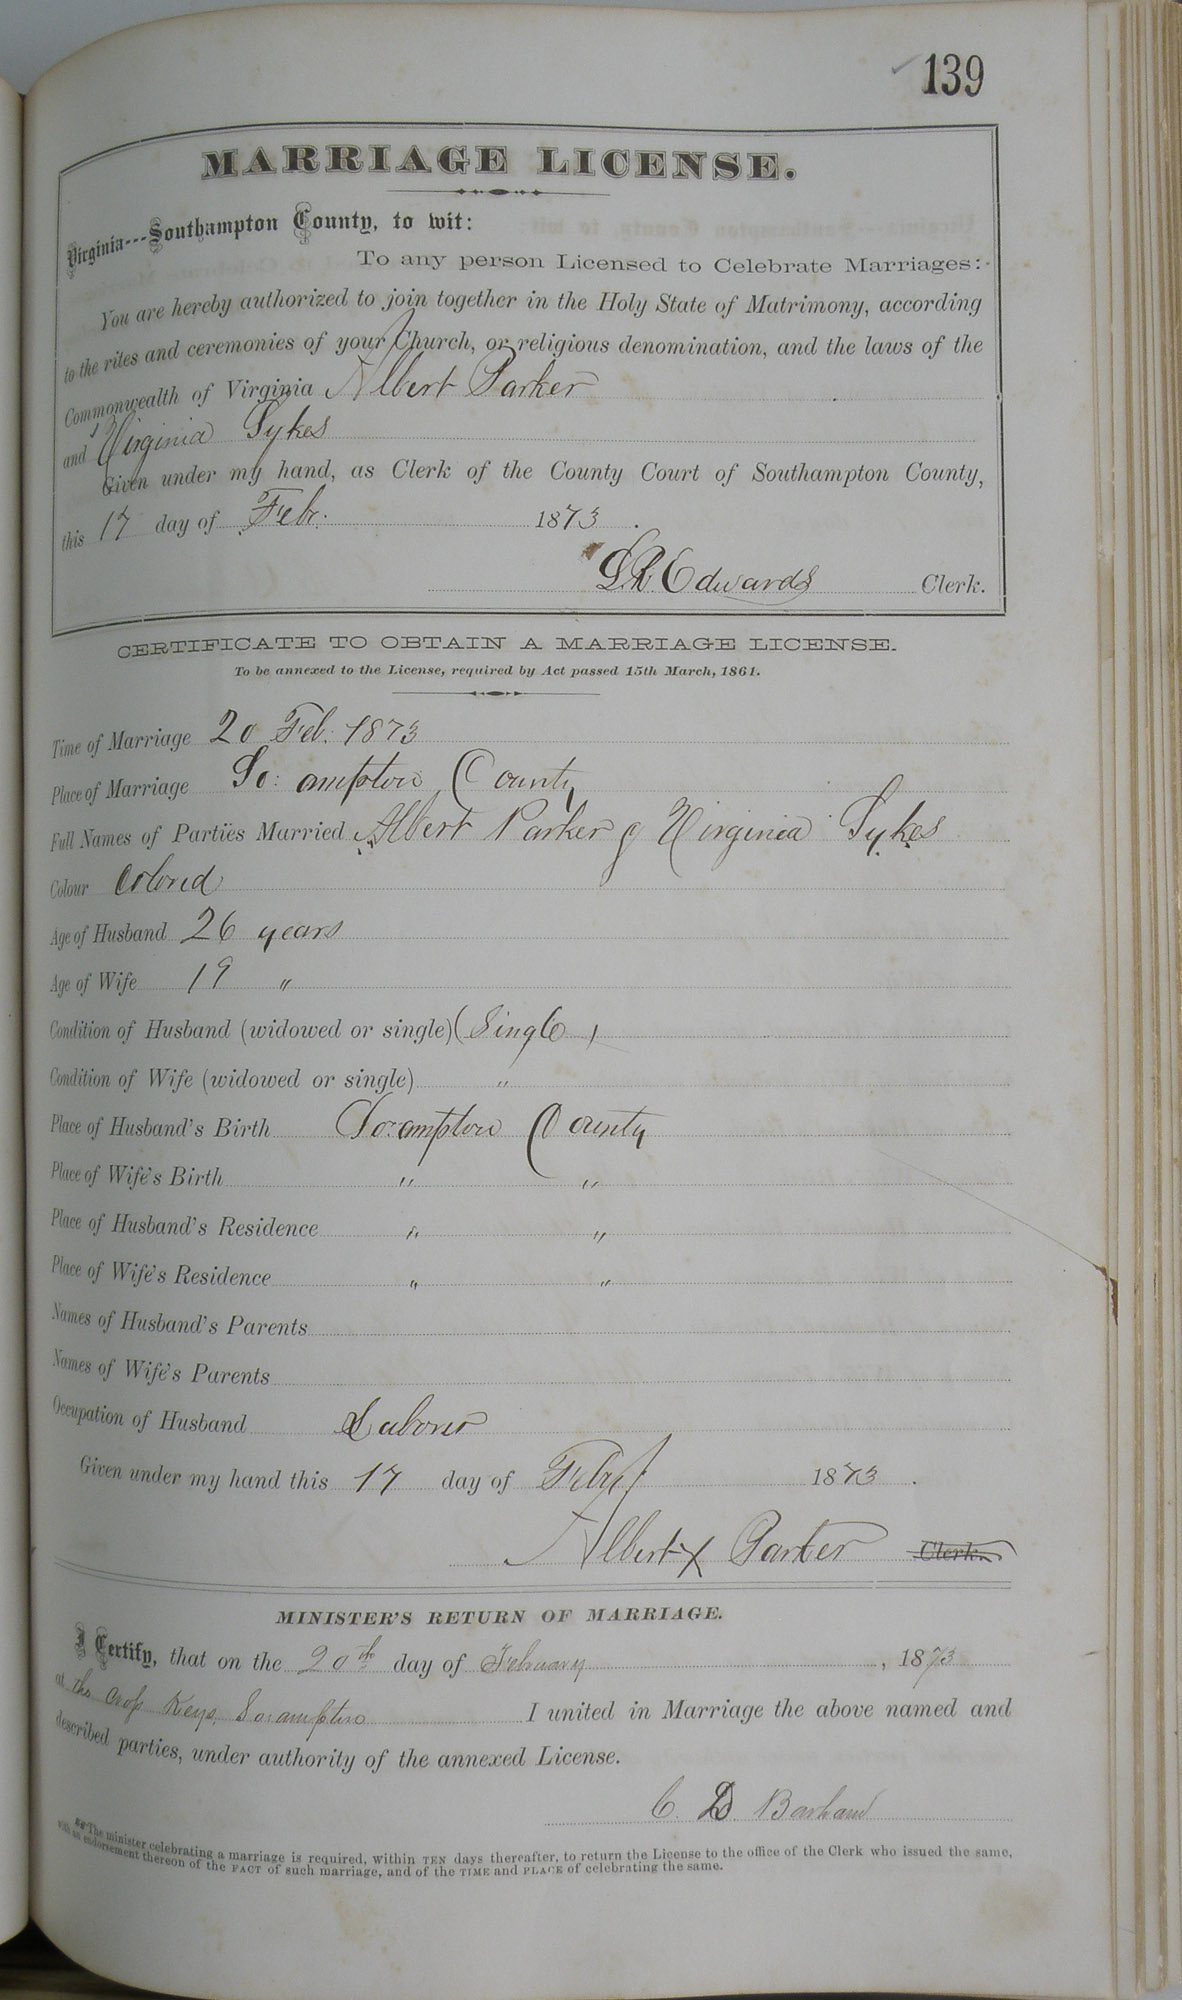 139
MARRIAGE LICENSE.
Virginia---Southampton County, to wit:
To any person Licensed to Celebrate Marriages:
You are hereby authorized to join together in the Holy State of Matrimony, according
to the rites and ceremonies of your Church, or religious denomination, and the laws of the
Commonwealth of Virginia Albert Parker
and Virginia Sykes
Given under my hand, as Clerk of the County Court of Southampton County,
this 17 day of Febr. 1873.
L R Edwards Clerk.
CERTIFICATE TO OBTAIN A MARRIAGE LICENSE.
To be annexed to the License, required by Act passed 15th March, 1861.
Time of Marriage 20 Feb. 1873
Place of Marriage So: ampton County
Full Names of Parties Married Albert Parker & Virginia Sykes
Colour Colored
Age of Husband 26 years
Age of Wife 19 "
Condition of Husband (widowed or single) (Single)
Condition of Wife (widowed or single) "
Place of Husband's Birth So:ampton County
Place of Wife's Birth " "
Place of Husband's Residence " "
Place of Wife's Residence " "
Names of Husband's Parents
Names of Wife's Parents
Occupation of Husband Laborer
Given under my hand this 17 day of Feby 1873.
Albert X Parker Clerk.
MINISTER'S RETURN OF MARRIAGE.
I Certify, that on the 20th day of February, 1873
at the Cross Keys, So:ampton I united in Marriage the above named and
described parties, under authority of the annexed License.
C. D Barham
The minister celebrating a marriage is required, within TEN days thereafter, to return the License to the office of the Clerk who issued the same,
with an endorsement thereon of the FACT of such marriage, and of the TIME and PLACE of celebrating the same.